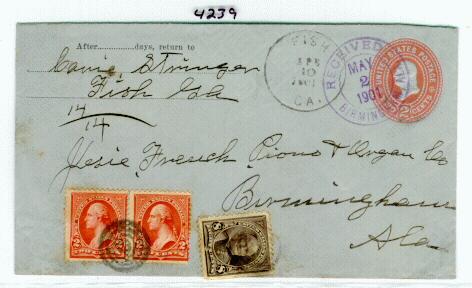 4239
After..........days, return to
Carrie Stringer
Fish Ga
14
14
FISH
APR
10
1901
GA.
RECEIVED
MAY
2
1901
BIRMINGHAM, ALA.
UNITED STATES POSTAGE
2 CENTS
Jesie French Piano & Organ Co
Birmingham
Ala
2
2
TWO CENTS
5